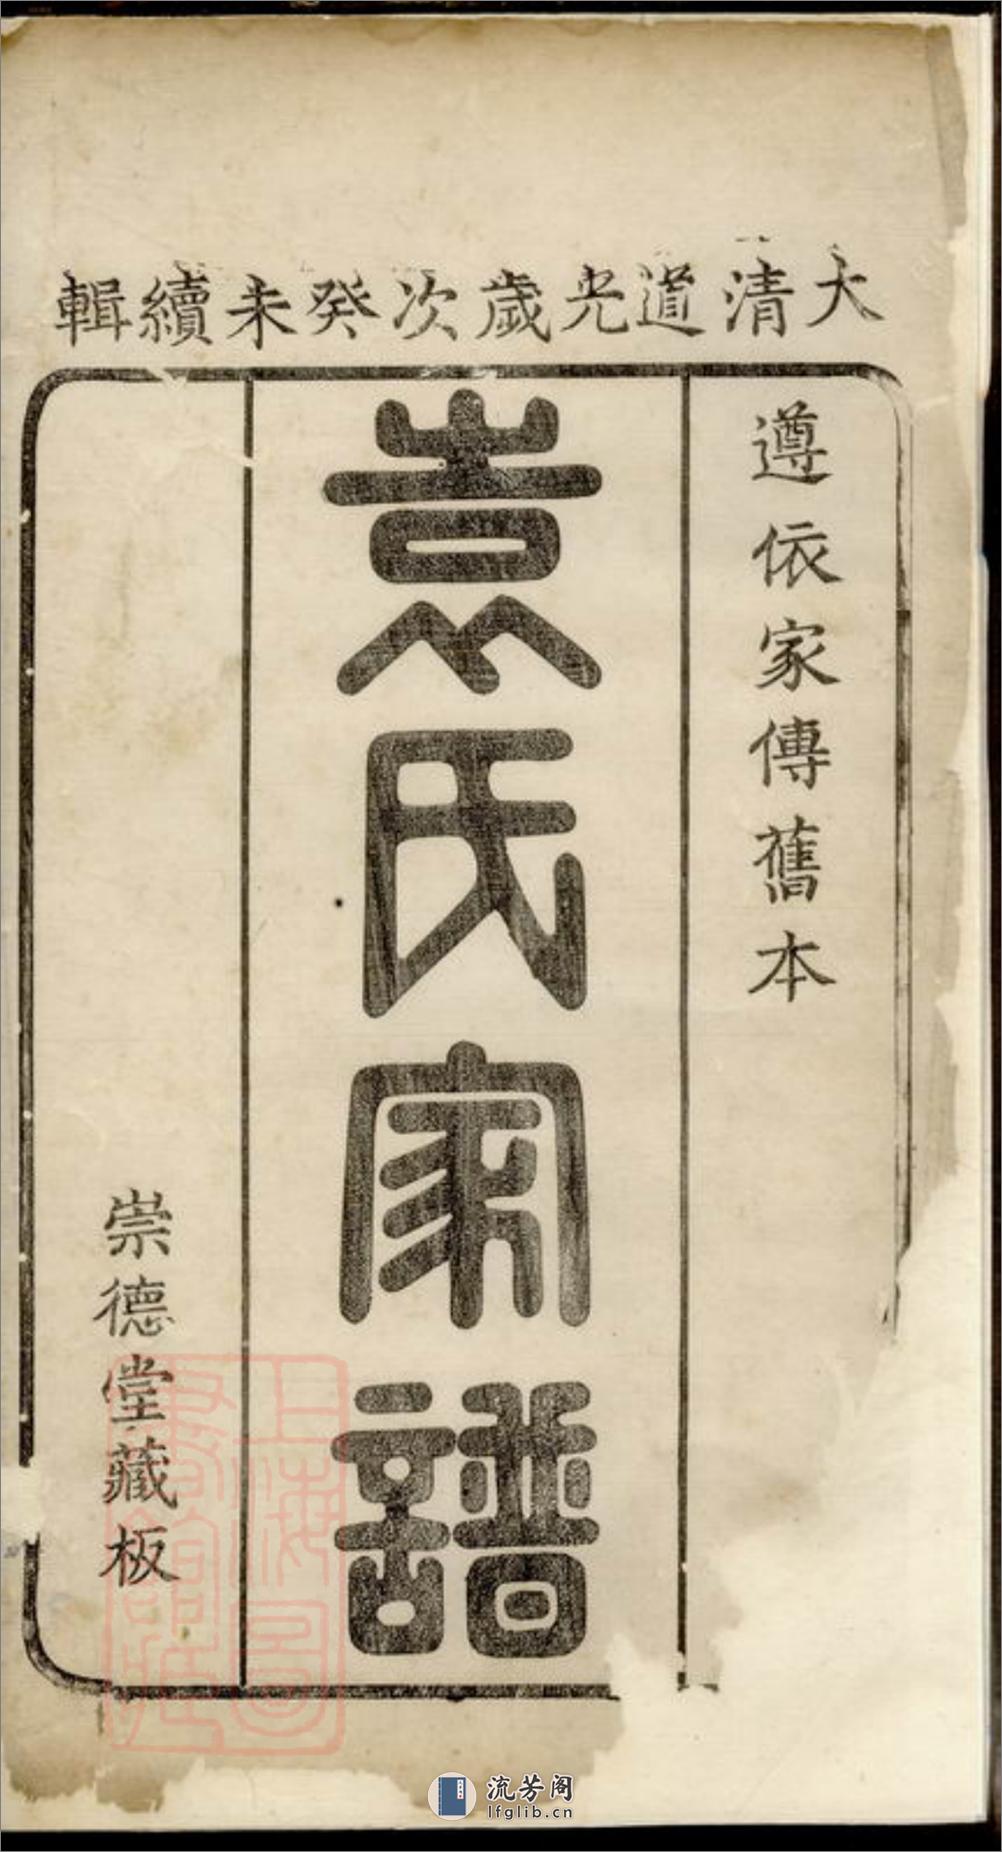 大清道光歲次癸未續輯
遵依家傳舊本
袁氏家譜
崇德堂藏板
上海圖書館藏
流芳阁
lfglib.cn